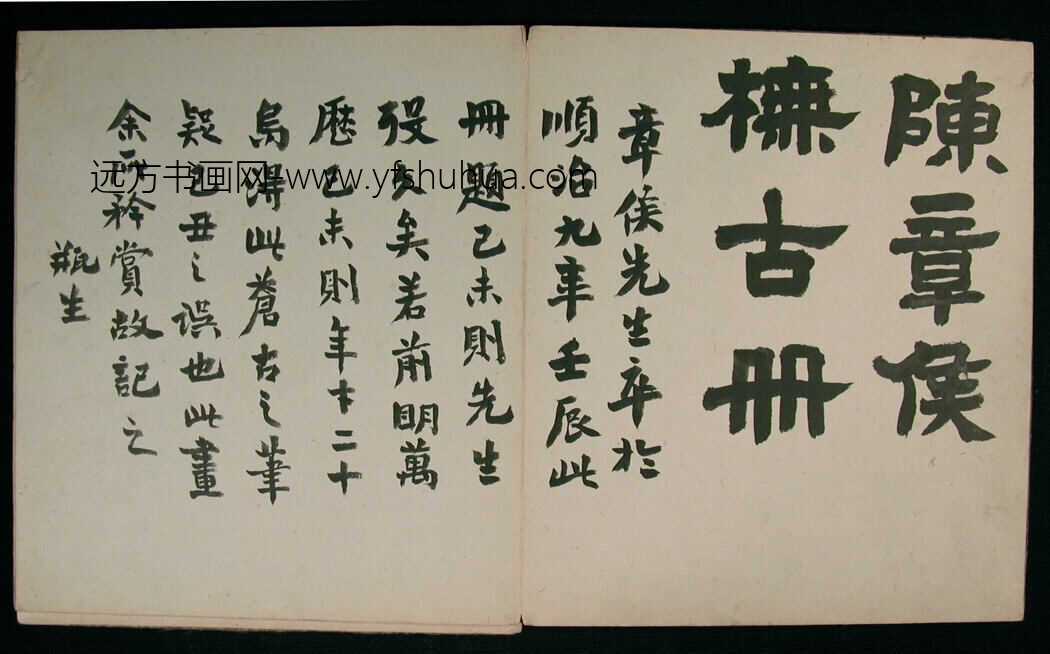 陳章侯
橅古冊
章侯先生卒於
順治九年壬辰此
冊題己未則先生
歿久矣若前明萬
歷己未則年才二十
烏得此蒼古之筆
疑己丑之誤也此畫
余所矜賞故記之
瓶生
远方书画网-www.yfshuhua.com